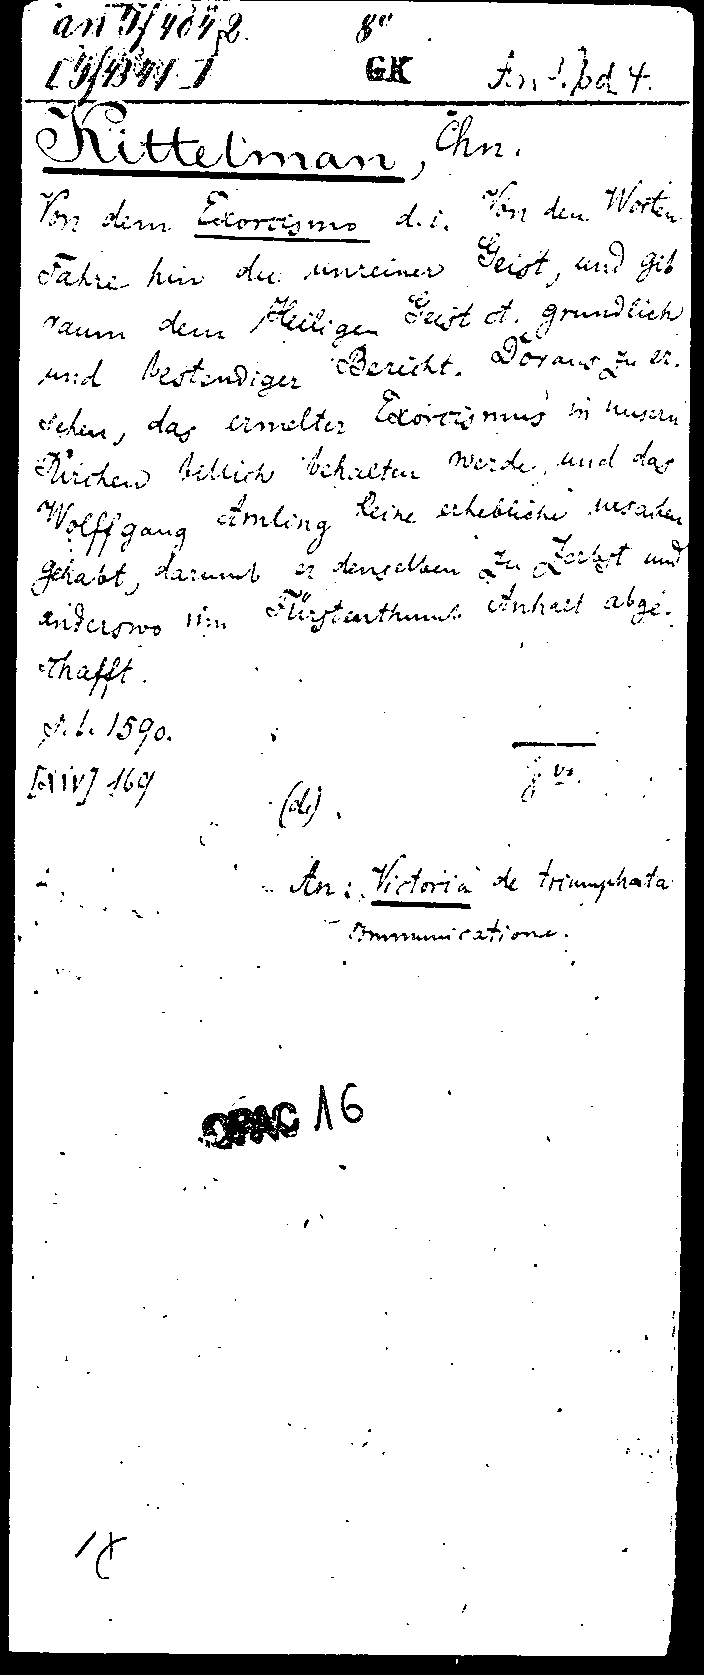 8°
GK
Kittelman, Chn.
Von dem Exorcismo d. i. Von den Worten
Fahre hin du unreiner Geist, und gib
raum dem Heiligen Geist etc. grundlich
und bestendiger Bericht. Doraus zu er-
sehen, das ermelter Exorcismus in unsern
Kirchen billich behalten werde, und das
Wolffgang Amling keine erhebliche ursachen
gehabt, darumb er denselben zu Zerbst und
anderswo im Fürstenthumb Anhalt abge-
schafft.
s. l. 1590.
[XIV] 169
(de)
An: Victoria de triumphata
communicatione.
OPAC 16